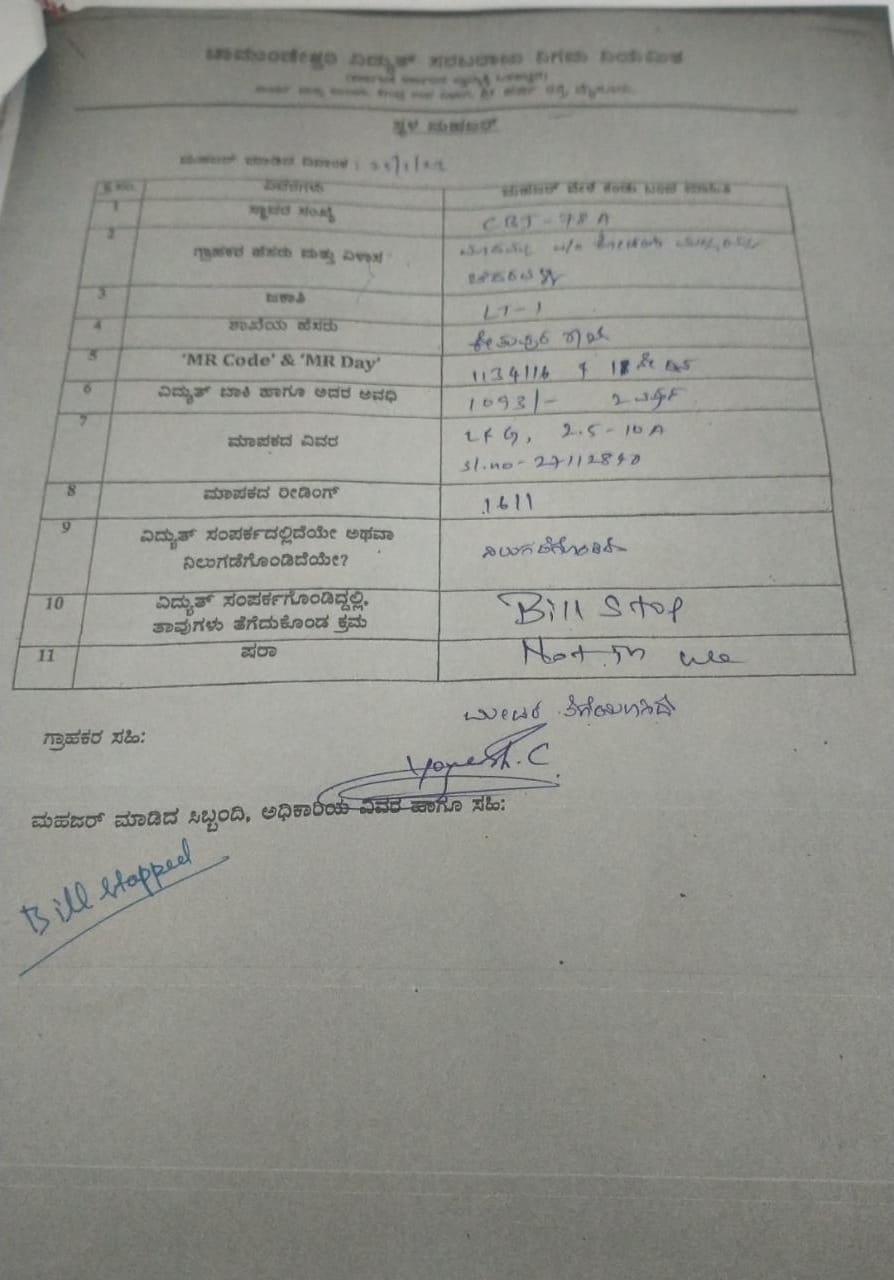 ಚಾಮುಂಡೇಶ್ವರಿ ವಿದ್ಯುತ್ ಸರಬರಾಜು ನಿಗಮ ನಿಯಮಿತ
ಸ್ಥಳ ಮಹಜರ್
ಮಹಜರ್ ಮಾಡಿದ ದಿನಾಂಕ :
ಕ್ರ.ಸಂ. ವಿವರಗಳು ಮಹಜರ್ ವೇಳೆ ಕಂಡು ಬಂದ ಮಾಹಿತಿ
1 ಸ್ಥಾವರ ಸಂಖ್ಯೆ CBJ-78A
2 ಗ್ರಾಹಕರ ಹೆಸರು ಮತ್ತು ವಿಳಾಸ
3 ಜಕಾತಿ LT-1
4 ಶಾಖೆಯ ಹೆಸರು
5 'MR Code' & 'MR Day' 1134116 & 18ನೇ ದಿನ
6 ವಿದ್ಯುತ್ ಬಾಕಿ ಹಾಗೂ ಅದರ ಅವಧಿ 1093/- 2 ವರ್ಷ
7 ಮಾಪಕದ ವಿವರ L&G, 2.5-10A
sl.no-27112840
8 ಮಾಪಕದ ರೀಡಿಂಗ್ 1611
9 ವಿದ್ಯುತ್ ಸಂಪರ್ಕದಲ್ಲಿದೆಯೇ ಅಥವಾ
ನಿಲುಗಡೆಗೊಂಡಿದೆಯೇ? ನಿಲುಗಡೆಗೊಂಡಿದೆ
10 ವಿದ್ಯುತ್ ಸಂಪರ್ಕಗೊಂಡಿದ್ದಲ್ಲಿ,
ತಾವುಗಳು ತೆಗೆದುಕೊಂಡ ಕ್ರಮ Bill Stop
11 ಷರಾ Not in use
ಮೀಟರ್ ತೆಗೆಯಲಾಗಿದೆ
ಗ್ರಾಹಕರ ಸಹಿ:
Yogesh.C
ಮಹಜರ್ ಮಾಡಿದ ಸಿಬ್ಬಂದಿ, ಅಧಿಕಾರಿಯ ವಿವರ ಹಾಗೂ ಸಹಿ:
Bill stopped